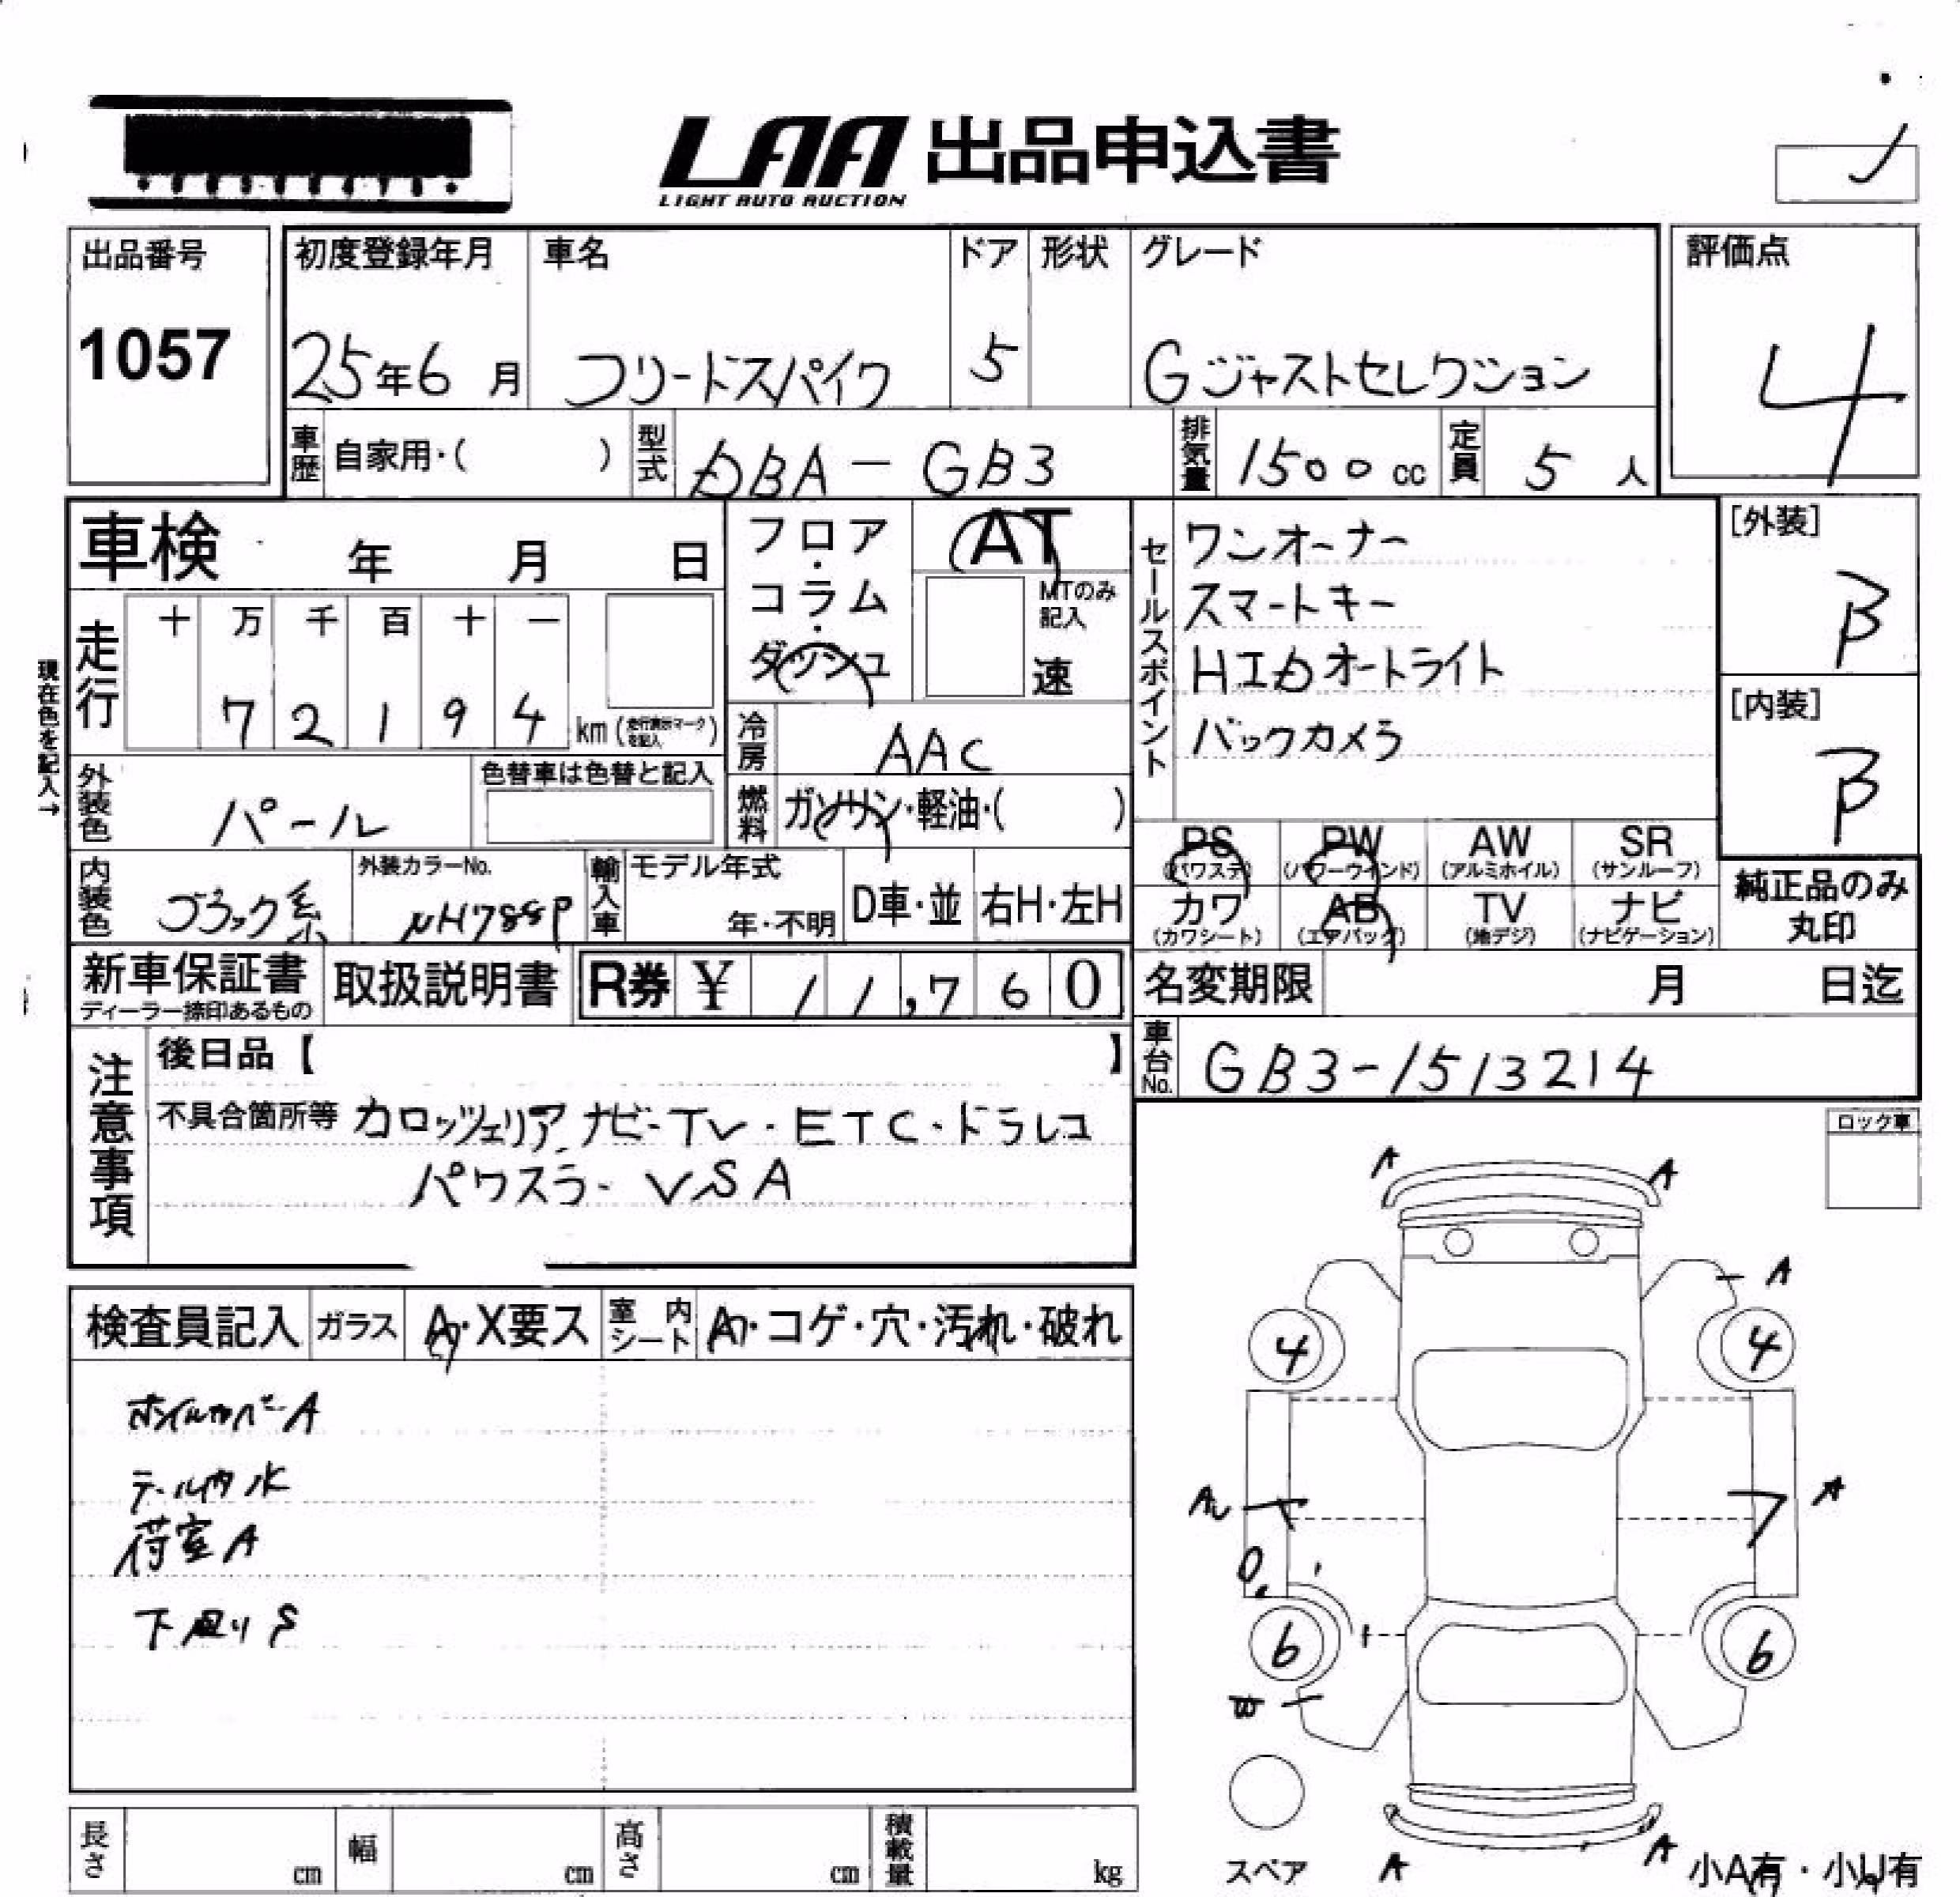 LAA 出品申込書
LIGHT AUTO AUCTION
出品番号
1057
初度登録年月
25年6月
車名
フリードスパイク
ドア
5
形状
グレード
Gジャストセレクション
評価点
4
車歴 自家用・( )
型式 DBA-GB3
排気量 1500cc
定員 5人
車検 年 月 日
フロア・コラム・ダッシュ
AT
MTのみ記入
速
セールスポイント
ワンオーナー
スマートキー
HIDオートライト
バックカメラ
[外装]
B
[内装]
B
現在色を記入→
走行
十 万 千 百 十 一
7 2 1 9 4 km(走行表示マークを記入)
冷房 AAC
燃料 ガソリン・軽油・( )
外装色 パール
色替車は色替と記入
内装色 ブラック系
外装カラーNo.
NH788P
輸入車 モデル年式
年・不明
D車・並
右H・左H
PS (パワステ)
PW (パワーウインド)
AW (アルミホイル)
SR (サンルーフ)
カワ (カワシート)
AB (エアバッグ)
TV (地デジ)
ナビ (ナビゲーション)
純正品のみ丸印
新車保証書
ディーラー捺印あるもの
取扱説明書
R券 ¥11,760
名変期限 月 日迄
車台No. GB3-1513214
注意事項
後日品【 】
不具合箇所等 カロッツェリアナビ・TV・ETC・ドラレコ
パワスラ・VSA
ロック車
検査員記入
ガラス A・X要ス
室内シート A・コゲ・穴・汚れ・破れ
ホイルカバーA
テール内水
荷室A
下廻りS
A A
A
4 4
A
6 6
W
A A
スペア
小A有・小U有
長さ cm
幅 cm
高さ cm
積載量 kg